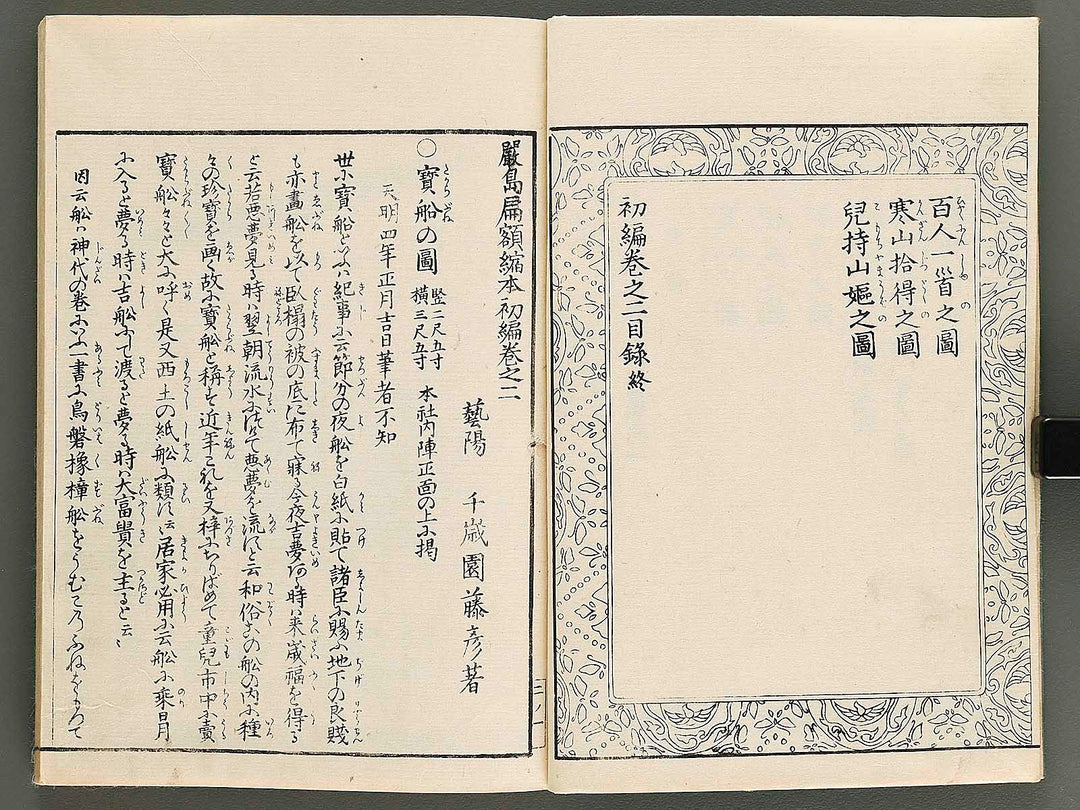 百人一首之圖
寒山拾得之圖
兒持山嫗之圖
初編巻之二目錄終
嚴島扁額縮本初編巻之二
藝陽 千歳園藤彦著
○寳船の圖 竪二尺五寸 横三尺五寸 本社内陣正面の上ニ掲
天明四年正月吉日筆者不知
世ニ寳船といふハ紀事ニ云節分の夜船を白紙ニ貼て諸臣ニ賜ふ地下の良賤
も亦畫船を以て臥榻の被の底に布て寐る今夜吉夢ある時ハ来歳福を得る
と云若悪夢見る時ハ翌朝流水に従て悪夢を流すと云和俗この船の内ニ種
々の珍寳を画く故ニ寳船と稱も近年これを又梓にちりばめて童兒市中ニ賣
寳船々々と大ニ呼く是又西土の紙船ニ類すと云居家必用ニ云船ニ乗月
ニ入ると夢る時ハ吉船ニて渡ると夢る時ハ大富貴を主ると云〻
因云船ハ神代の巻ニいふ一書ニ鳥磐橡樟船をうむこのふねをもつて